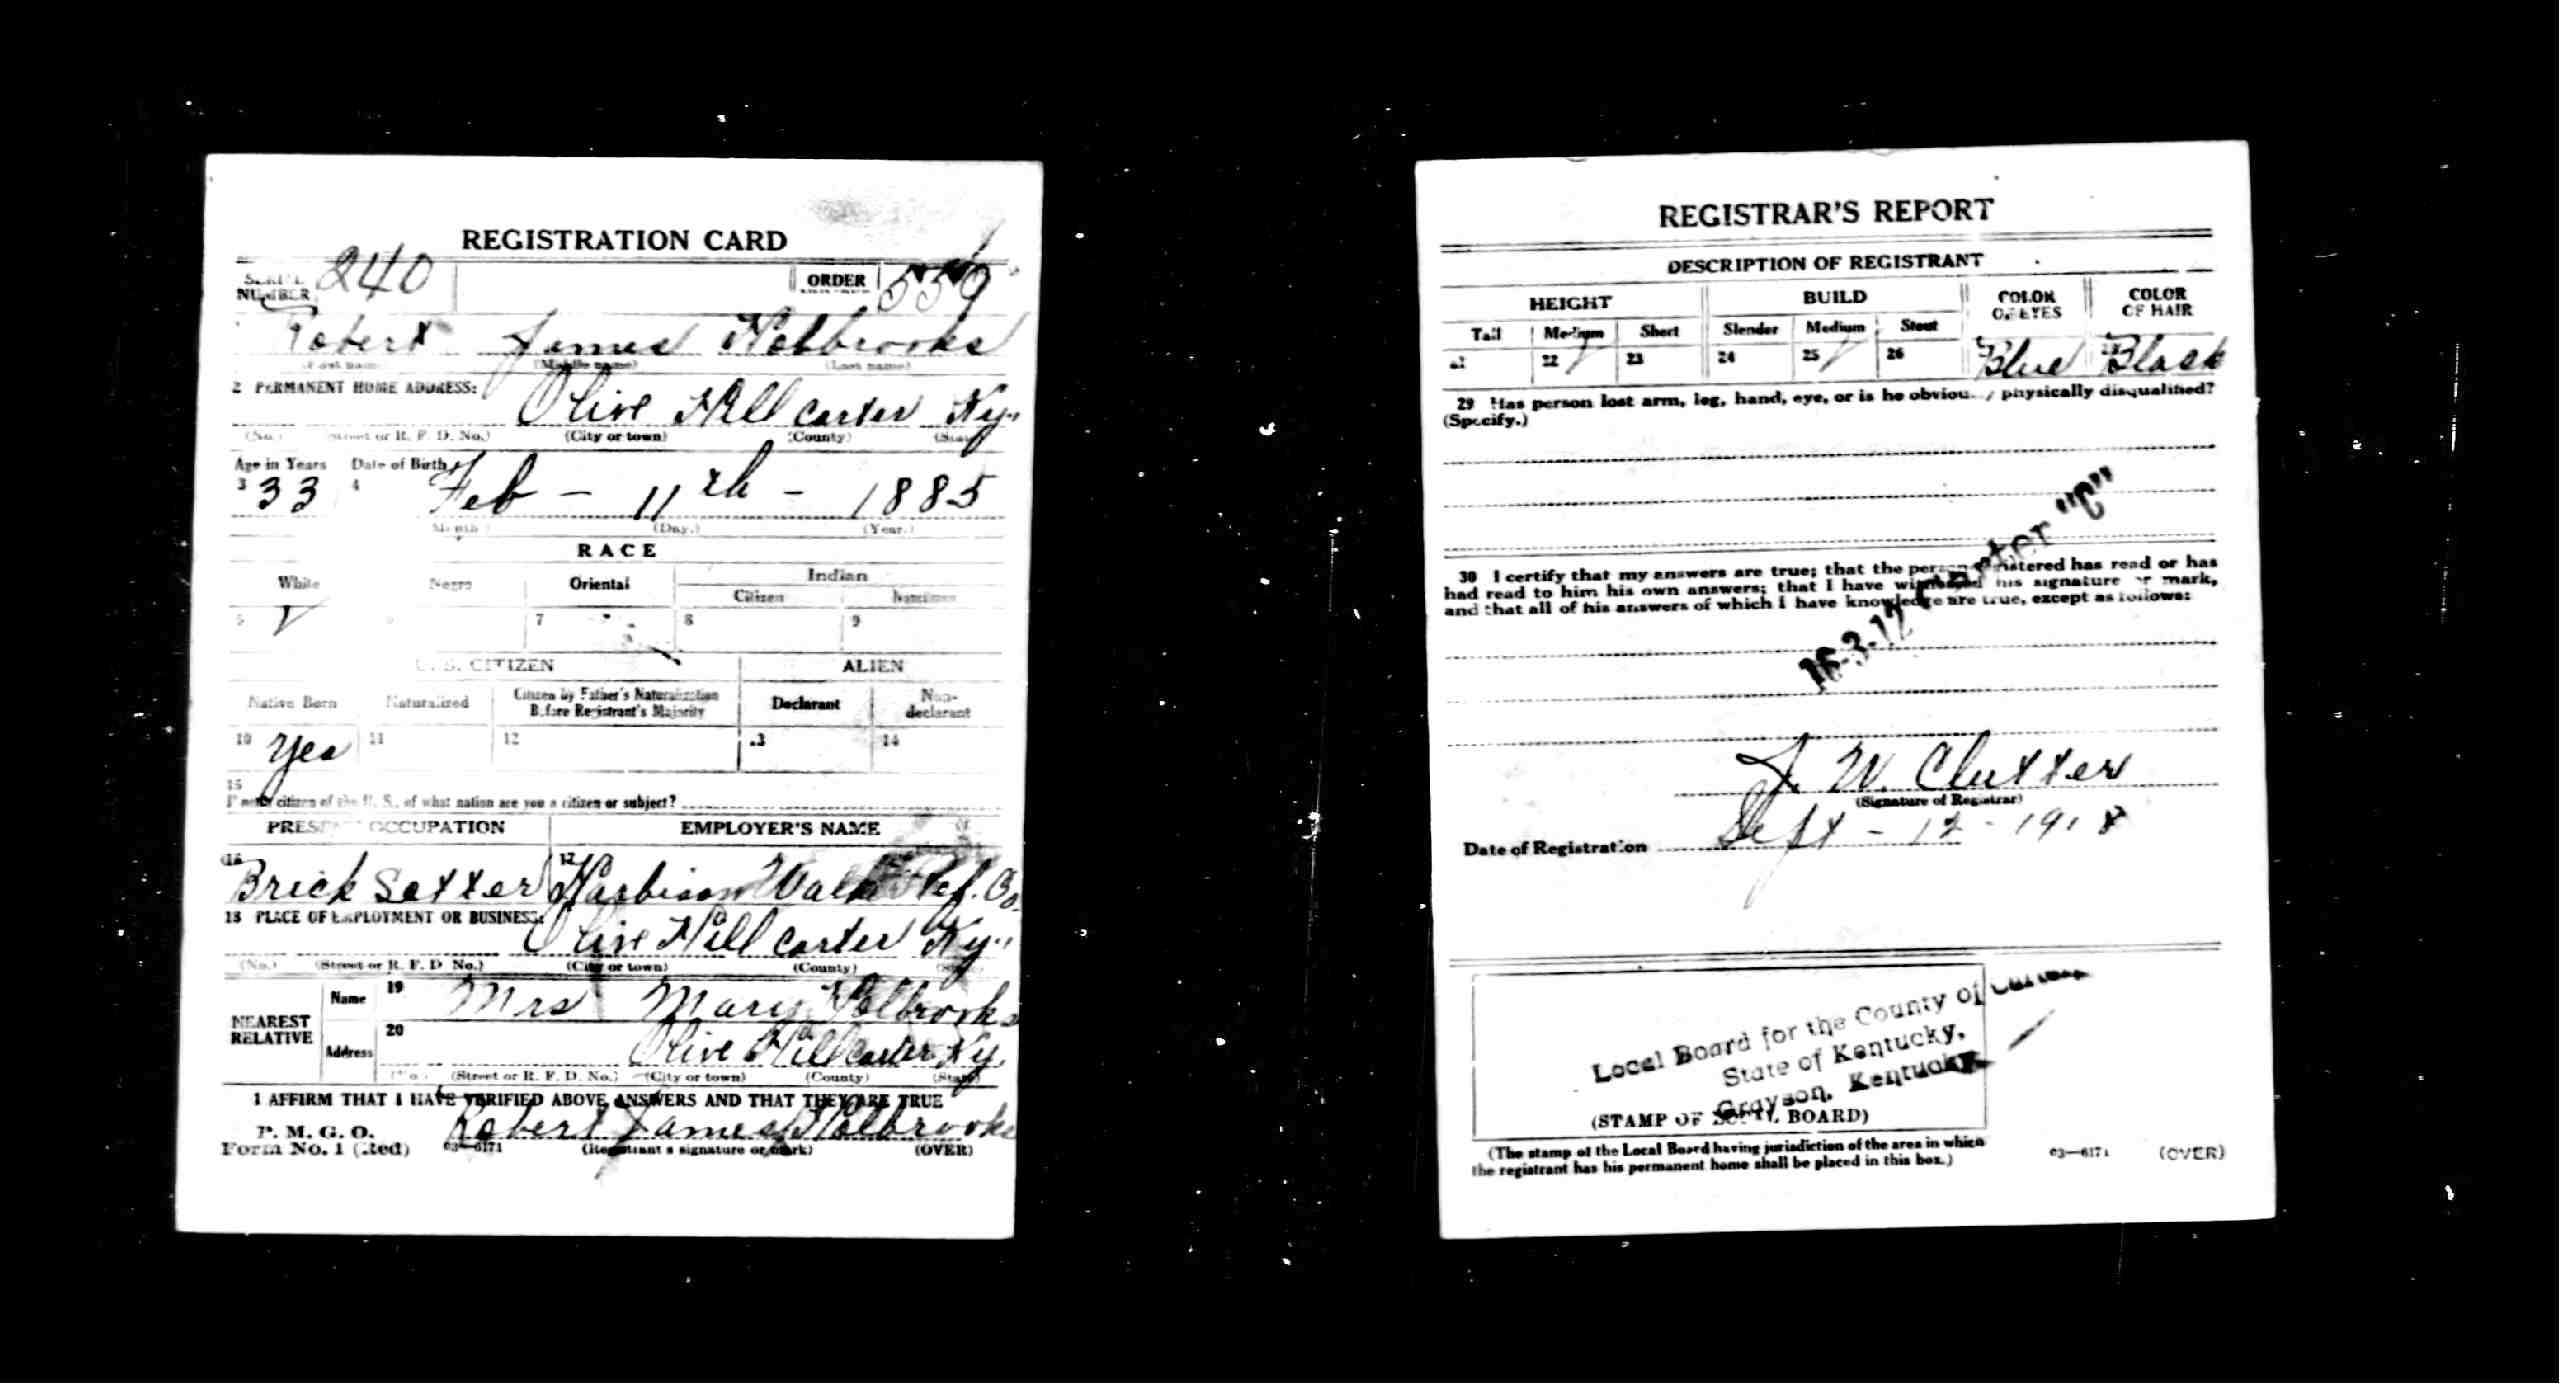 REGISTRATION CARD
SERIAL NUMBER 240 ORDER 559
Robert James Holbrooks
(First name) (Middle name) (Last name)
2 PERMANENT HOME ADDRESS:
Olive Hill Carter Ky.
(No.) (Street or R. F. D. No.) (City or town) (County) (State)
Age in Years Date of Birth
3 33 4 Feb - 11th - 1885
(Month) (Day.) (Year.)
RACE
White Negro Oriental Indian
Citizen Noncitizen
5 7 8 9
U. S. CITIZEN ALIEN
Native Born Naturalized Citizen by Father's Naturalization Before Registrant's Majority Declarant Non-declarant
10 Yes 11 12 13 14
15
If not a citizen of the U. S., of what nation are you a citizen or subject?
PRESENT OCCUPATION EMPLOYER'S NAME
16 Brick Setter 17 Harbison Walker Ref. Co.
18 PLACE OF EMPLOYMENT OR BUSINESS:
Olive Hill Carter Ky.
(No.) (Street or R. F. D. No.) (City or town) (County) (State)
NEAREST RELATIVE
Name 19 Mrs Mary Holbrooks
Address 20 Olive Hill Carter Ky.
(No.) (Street or R. F. D. No.) (City or town) (County) (State)
I AFFIRM THAT I HAVE VERIFIED ABOVE ANSWERS AND THAT THEY ARE TRUE
P. M. G. O.
Form No. 1 (Red) 03—6171 Robert James Holbrooks
(Registrant's signature or mark) (OVER)
REGISTRAR'S REPORT
DESCRIPTION OF REGISTRANT
HEIGHT BUILD COLOR OF EYES COLOR OF HAIR
Tall Medium Short Slender Medium Stout
21 22 23 24 25 26 27 Blue 28 Black
29 Has person lost arm, leg, hand, eye, or is he obviously physically disqualified?
(Specify.)
30 I certify that my answers are true; that the person registered has read or has
had read to him his own answers; that I have witnessed his signature or mark,
and that all of his answers of which I have knowledge are true, except as follows:
16-3-12 Carter "C"
J. W. Clutter
(Signature of Registrar)
Date of Registration Sept - 12 - 1918
Local Board for the County of Carter
State of Kentucky,
Grayson, Kentucky
(STAMP OF LOCAL BOARD)
(The stamp of the Local Board having jurisdiction of the area in which
the registrant has his permanent home shall be placed in this box.)
03—6171 (OVER)